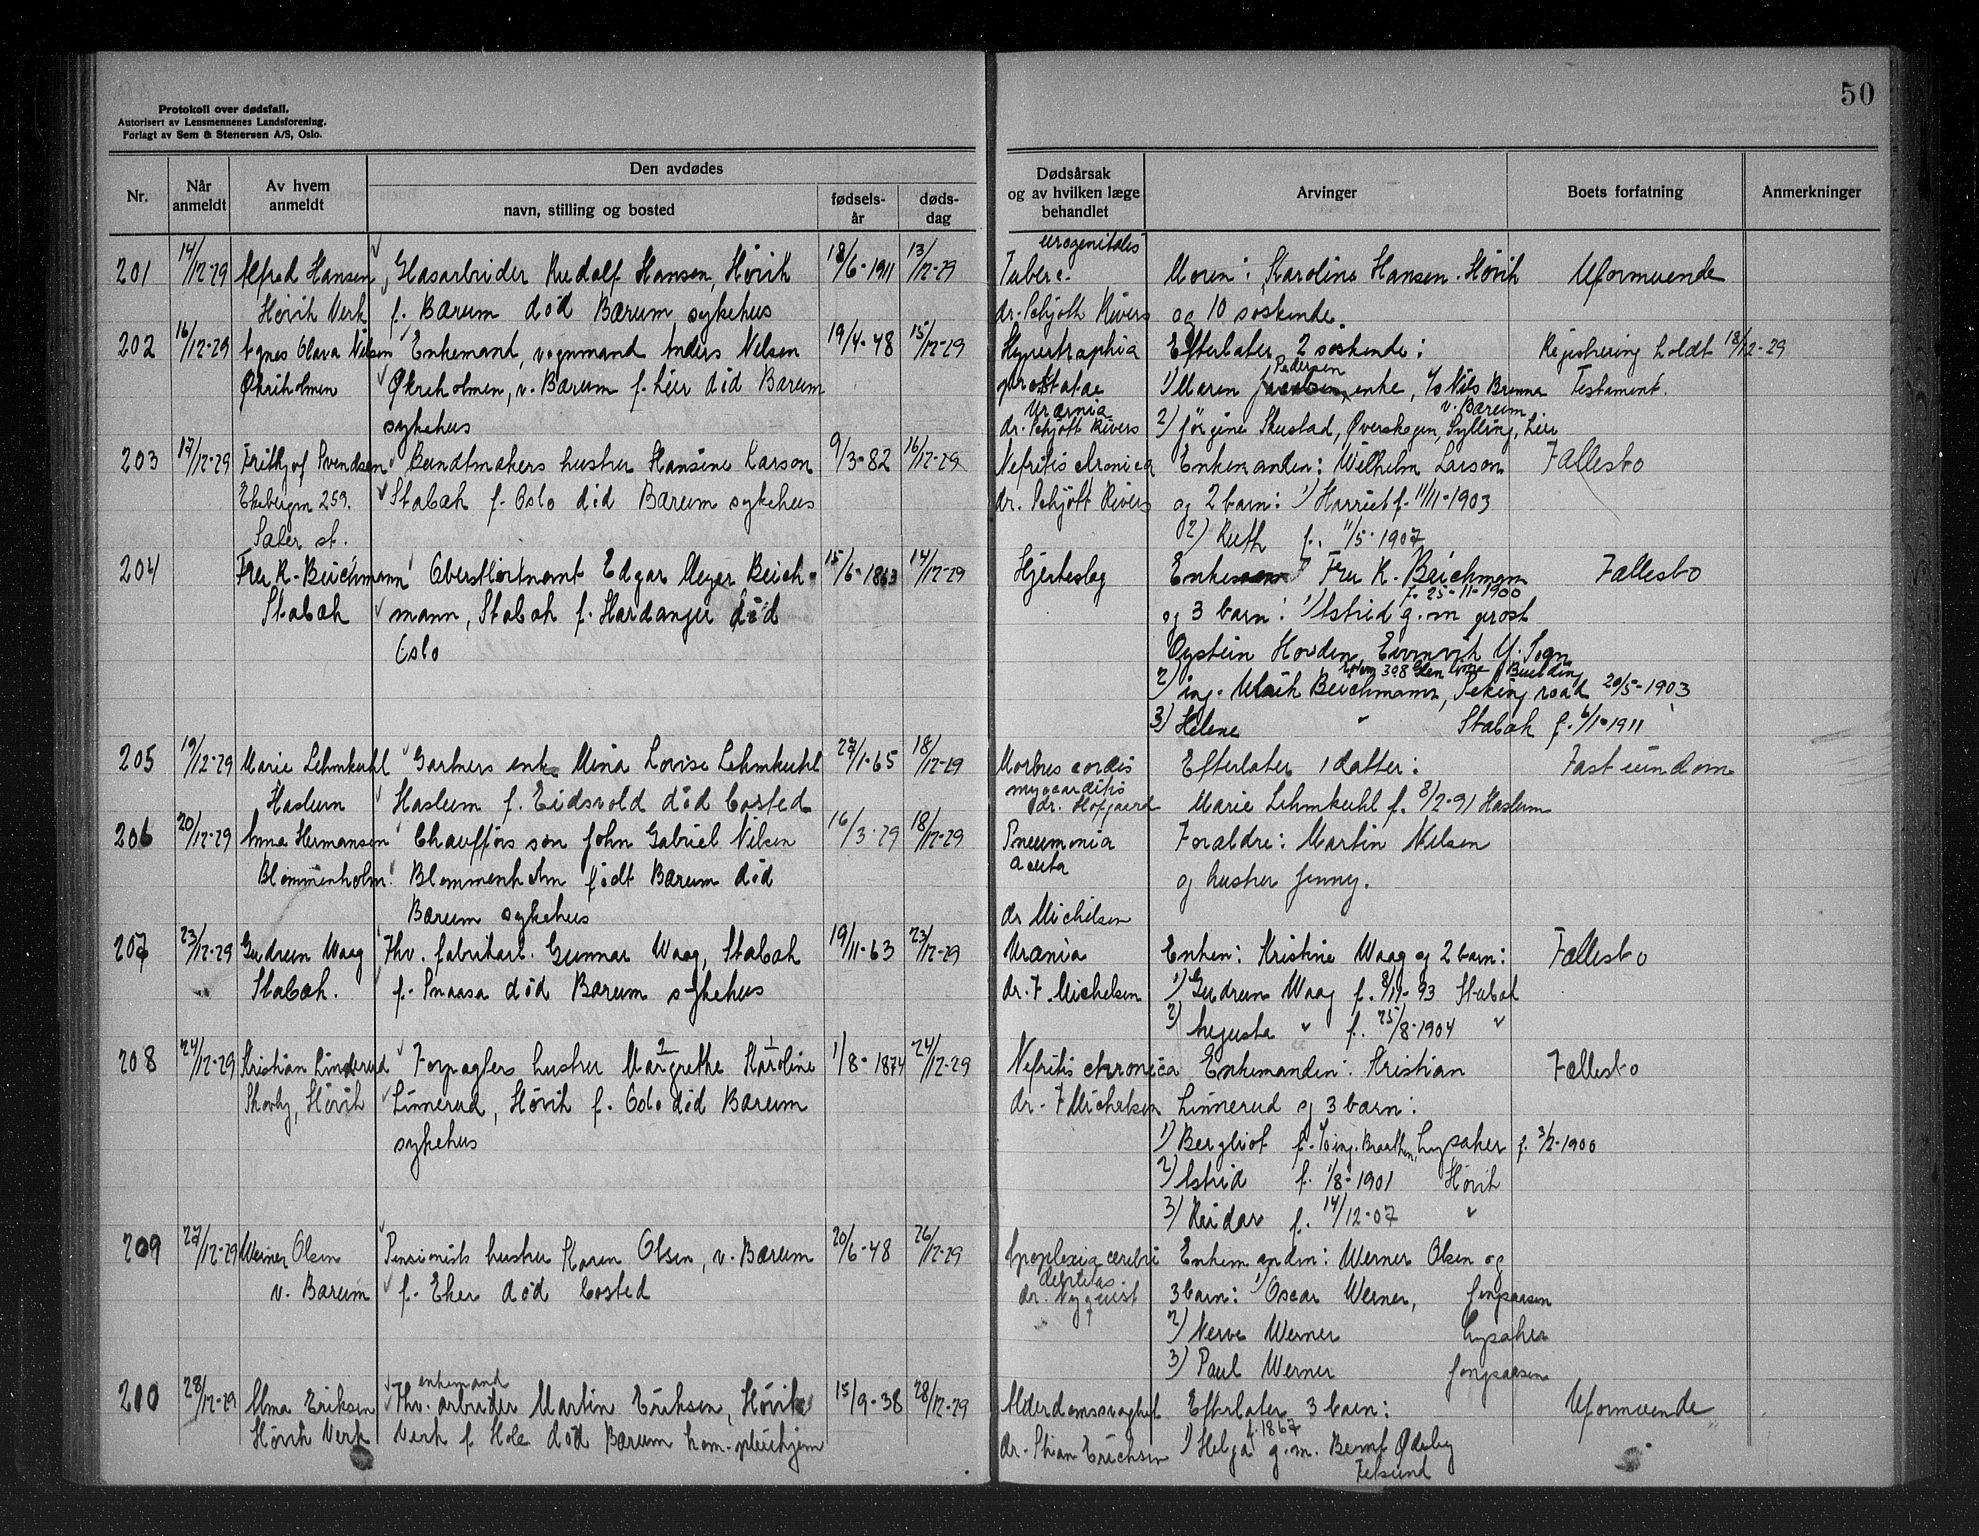 Protokoll over dødsfall.
Autorisert av Lensmennenes Landsforening.
Forlagt av Sem & Stenersen A/S, Oslo.
50
Nr.
Når anmeldt
Av hvem anmeldt
Den avdødes
navn, stilling og bosted
fødsels-år
døds-dag
Dødsårsak og av hvilken læge behandlet
Arvinger
Boets forfatning
Anmerkninger
201 14/12-29 Alfred Hansen Glasarbeider Rudolf Hansen, Høvik 18/6-1911 13/12-29
Høvik Verk f. Bærum død Bærum sykehus
urogenitales
Taberc. Moren: Karoline Hansen. Høvik Uformuende
dr. Schjøth Rivers og 10 søskende.
202 16/12-29 Agnes Olava Nilsen Enkemand, vognmand Anders Nilsen 19/4-48 15/12-29
Økriholmen Økreholmen, v. Bærum f. Lier død Bærum
sykehus
Hypertrophia Efterlater 2 søskende: Registrering holdt 18/12-29
prostatae 1) Maren Pedersen, enke, Nils Brenna Testament.
Uræmia v. Bærum
dr. Schjøtt Rivers 2) Jørgine Skustad, Øverskogen, Sylling, Lier
203 17/12-29 Frithjof Svendsen Bundtmakers hustru Hansine Larson 9/3-82 16/12-29
Ekebergvn 259. Stabæk f. Oslo død Bærum sykehus
Sæter st.
Nefritis chronica Enkemanden: Wilhelm Larson Fællesbo
dr. Schjøtt Rivers og 2 barn: 1) Harriet f. 11/11-1903
2) Ruth f. 11/5-1907
204 Fru K. Beichmann Oberstløitnamt Edgar Meyer Beich- 15/6-1863 14/12-29
Stabæk mann, Stabæk f. Hardanger død
Oslo
Hjerteslag Enken Fru K. Beichmann Fællesbo
f. 25-11-1900
og 3 barn: 1) Astrid g.m prost
Øystein Hovden, Eivinvik Y. Sogn
Room 308 Glen Line Building
2) ing. Ulrik Beichmann, Peking road 20/5-1903
3) Helene " Stabæk f. 6/1-1911
205 19/12-29 Marie Lehmkuhl Gartners enke Mina Lovise Lehmkuhl 27/1-65 18/12-29
Haslum Haslum f. Eidsvold død bosted
Morbus cordis Efterlater 1 datter: Fast eiendom
myocarditis
dr. Hofgaard Marie Lehmkuhl f. 8/2-91 Haslum
206 20/12-29 Anna Hermansen Chaufførs søn John Gabriel Nilsen 16/3-29 18/12-29
Blommenholm Blommenholm født Bærum død
Bærum sykehus
Pneumonia Forældre: Martin Nilsen
acuta og hustru Jenny.
dr Michelsen
207 23/12-29 Gudrun Waag Fhv. fabrikarb. Gunnar Waag, Stabæk 19/11-63 23/12-29
Stabæk. f. Snaasa død Bærum sykehus
Uræmia Enken: Kristine Waag og 2 barn: Fællesbo
dr. F. Michelsen 1) Gudrun Waag f. 8/11-93 Stabæk
2) Augusta " f. 25/8-1904 "
208 24/12-29 Kristian Linnerud Forpagters hustru Margrethe Karoline 1/8-1874 24/12-29
Skovly, Høvik Linnerud, Høvik f. Oslo død Bærum
sykehus
Nefritis chronica Enkemanden: Kristian Fællesbo
dr. F. Michelsen Linnerud og 3 barn:
1) Bergliot ing. Braathen, Lysaker f. 3/2-1900
2) Astrid f. 1/8-1901 Høvik
3) Reidar f. 14/12-07 "
209 27/12-29 Werner Olsen Pensionists hustru Karen Olsen, v. Bærum 20/6-48 26/12-29
v. Bærum f. Eker død bosted
Apoplexia cerebri Enkemanden: Werner Olsen og
dr. Nyquist 3 barn: 1) Oscar Werner, Jongsaasen
2) Werner Lysaker
3) Paul Werner Jongsaasen
210 28/12-29 Alma Eriksen Fhv. arbeider enkemand Martin Eriksen, Høvik 15/9-38 28/12-29
Høvik Verk Verk f. Hole død Bærum kom. pleiehjem
Alderdomssvaghet Efterlater 3 barn: Uformuende
f. 1867
dr. Stian Erichsen 1) Helga g.m. Bernt Ødeby
Jelsund